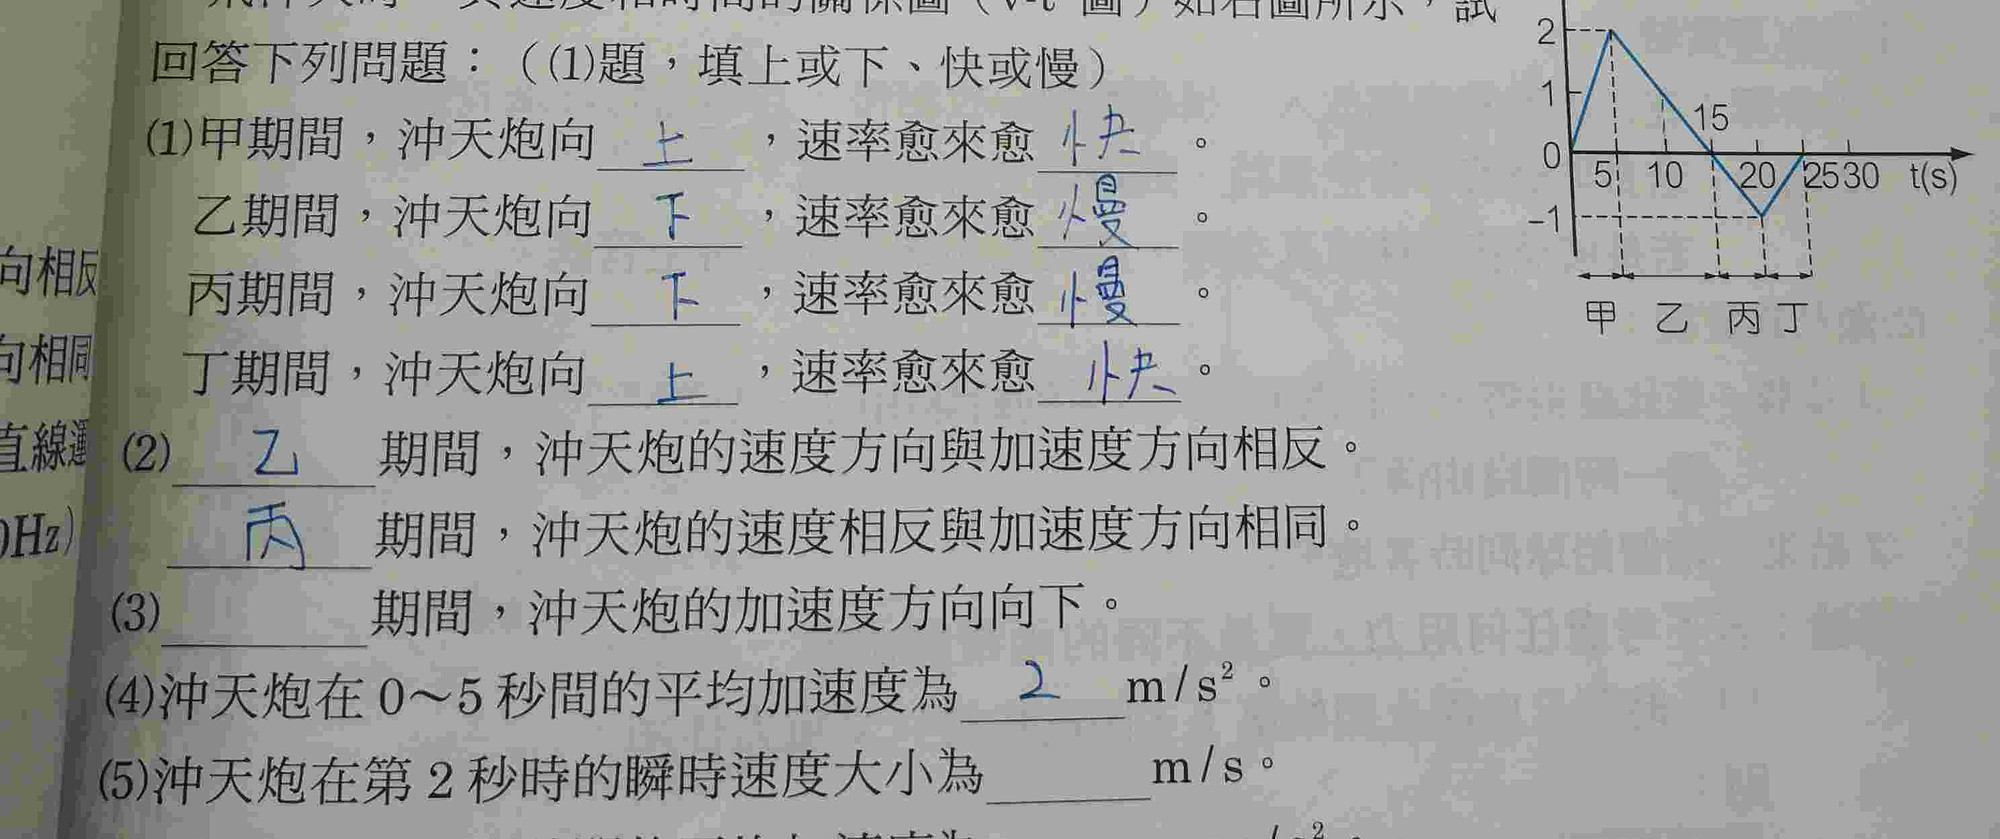 回答下列問題：（(1)題，填上或下、快或慢）
(1)甲期間，沖天炮向 上 ，速率愈來愈 快 。
乙期間，沖天炮向 下 ，速率愈來愈 慢 。
丙期間，沖天炮向 下 ，速率愈來愈 慢 。
丁期間，沖天炮向 上 ，速率愈來愈 快 。
(2) 乙 期間，沖天炮的速度方向與加速度方向相反。
丙 期間，沖天炮的速度相反與加速度方向相同。
(3) 期間，沖天炮的加速度方向向下。
(4)沖天炮在 0～5 秒間的平均加速度為 2 m/s²。
(5)沖天炮在第 2 秒時的瞬時速度大小為 m/s。
2
1
0
-1
5 10 15 20 25 30 t(s)
甲 乙 丙 丁
向相反
向相同
直線運
Hz)